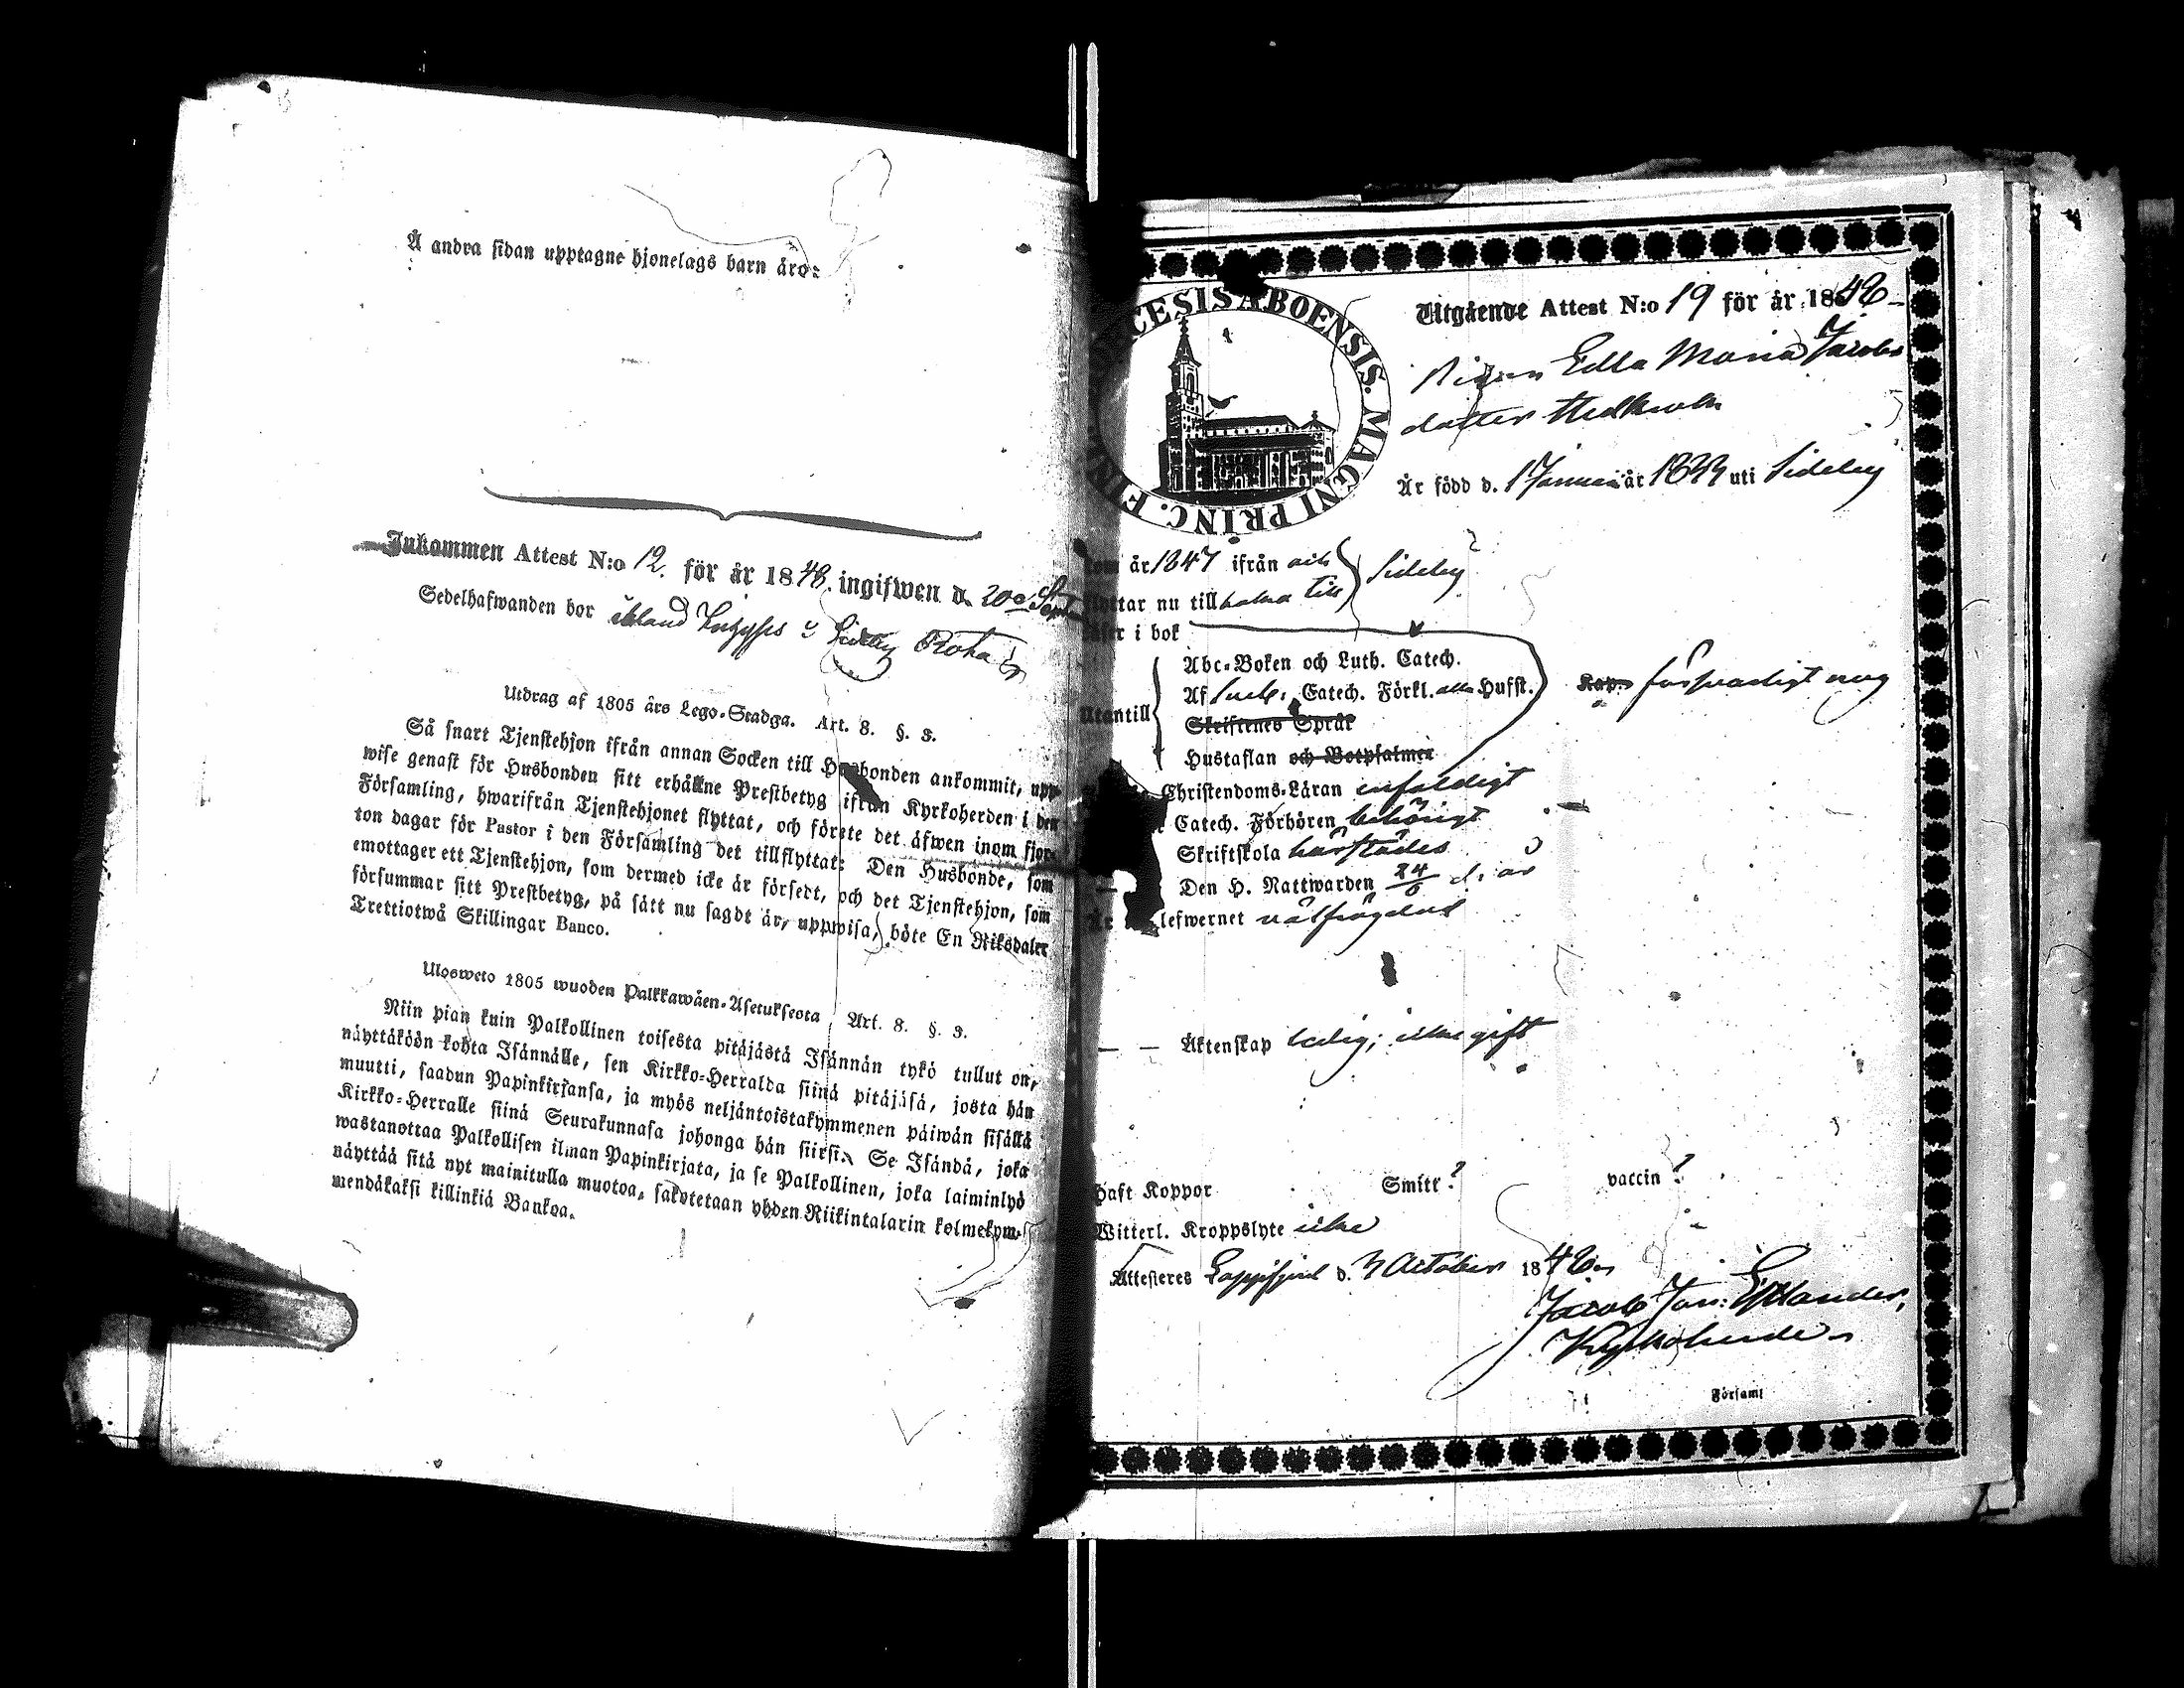 Å andra sidan upptagne hjonelags barn äro:
Inkommen Attest N:o 12. för år 1848. ingifwen d. 20
Sedelhafwanden bor
Utdrag af 1805 års Lego-Stadga. Art. 8. §. 3.
Så snart Tjenstehjon ifrån annan Socken till Husbonden ankommit, upp-
wise genast för Husbonden sitt erhållne Prestbetyg ifrån Kyrkoherden i den
Församling, hwarifrån Tjenstehjonet flyttat, och förete det äfwen inom fjor-
ton dagar för Pastor i den Församling det tillflyttat: Den Husbonde, som
emottager ett Tjenstehjon, som dermed icke är försedt, och det Tjenstehjon, som
försummar sitt Prestbetyg, på sätt nu sagdt är, uppwisa, böte En Riksdaler
Trettiotwå Skillingar Banco.
Ulosweto 1805 wuoden Palkkawäen-Asetuksesta Art. 8. §. 3.
Niin pian kuin Palkollinen toisesta pitäjästä Isännän tykö tullut on,
näyttäköön kohta Isännälle, sen Kirkko-Herralda siinä pitäjäsä, josta hän
muutti, saadun Papinkirjansa, ja myös neljäntoistakymmenen päiwän sisällä
Kirkko-Herralle siinä Seurakunnasa johonga hän siirsi. Se Isändä, joka
wastanottaa Palkollisen ilman Papinkirjata, ja se Palkollinen, joka laiminlyö
näyttää sitä nyt mainitulla muotoa, sakotetaan yhden Riikintalarin kolmekym-
mendäkaksi killinkiä Bankoa.
CESIS ABOENSIS. MAGNI PRINC. FIN
Utgående Attest N:o 19 för år 1848
Pigan Edla Maria Jacobs
dotter
Är född d. 1 Januari år 1833 uti Sideby
Kom år 1847 ifrån och } Sideby
flyttar nu till
läser i bok
Utantill
Abc-Boken och Luth. Catech.
Af Catech. Förkl. alla Hufst.
Skriftenes Språk
Hustaflan och Botpsalmer
Kap. förswarligt nog
Christendoms-Läran enfaldigt
Catech. Förhören behörigt
Skriftskola härstädes
Den H. Nattwarden 24/6 d. år
Är lefwernet wälfrägdad
Äktenskap ledig; icke gift
Haft Koppor Smitt? vaccin?
Witterl. Kroppslyte icke
Attesteres Lappfjerd d. 3 October 1848
Jacob Jon:
Kyrkoherde
Församl